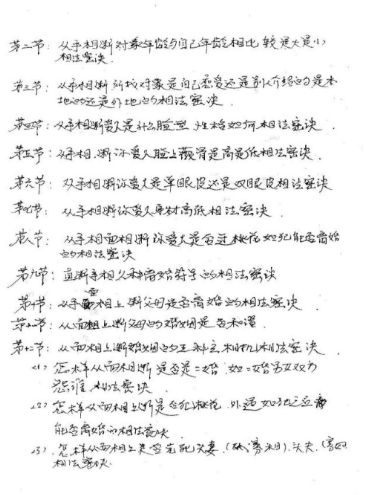 第二节：从手相断对象年龄与自己年龄相比较是大是小
相法密诀.
第三节：从手相断所找对象是自己恋爱还是别人介绍的是本
地的还是外地的相法密诀.
第四节：从手相断爱人是什么脸型.性格如何.相法密诀.
第五节：从手相.断你爱人脸上颧骨是高是低相法密诀.
第六节：从手相断你爱人是单眼皮还是双眼皮相法密诀
第七节：从手相断你爱人身材高低相法密诀.
第八节：从手相面相断你爱人是否进桃花如犯能否离婚
的相法密诀
第九节：直断手相父母离婚符号的相法密诀
第十节：从手面相上断父母是否离婚的相法密诀.
第十一节：从面相上断父母的婚姻是否和谐.
第十二节：从面相上断婚姻的三种主相机相法密诀.
<1>怎样从面相断是否是二婚.如二婚男女双方
恩谁.相法密诀.
<2>怎样从面相上断是否犯桃花.外遇如犯
能否离婚的相法密诀.
<3>.怎样从面相上是否克夫妻.
相法密诀.